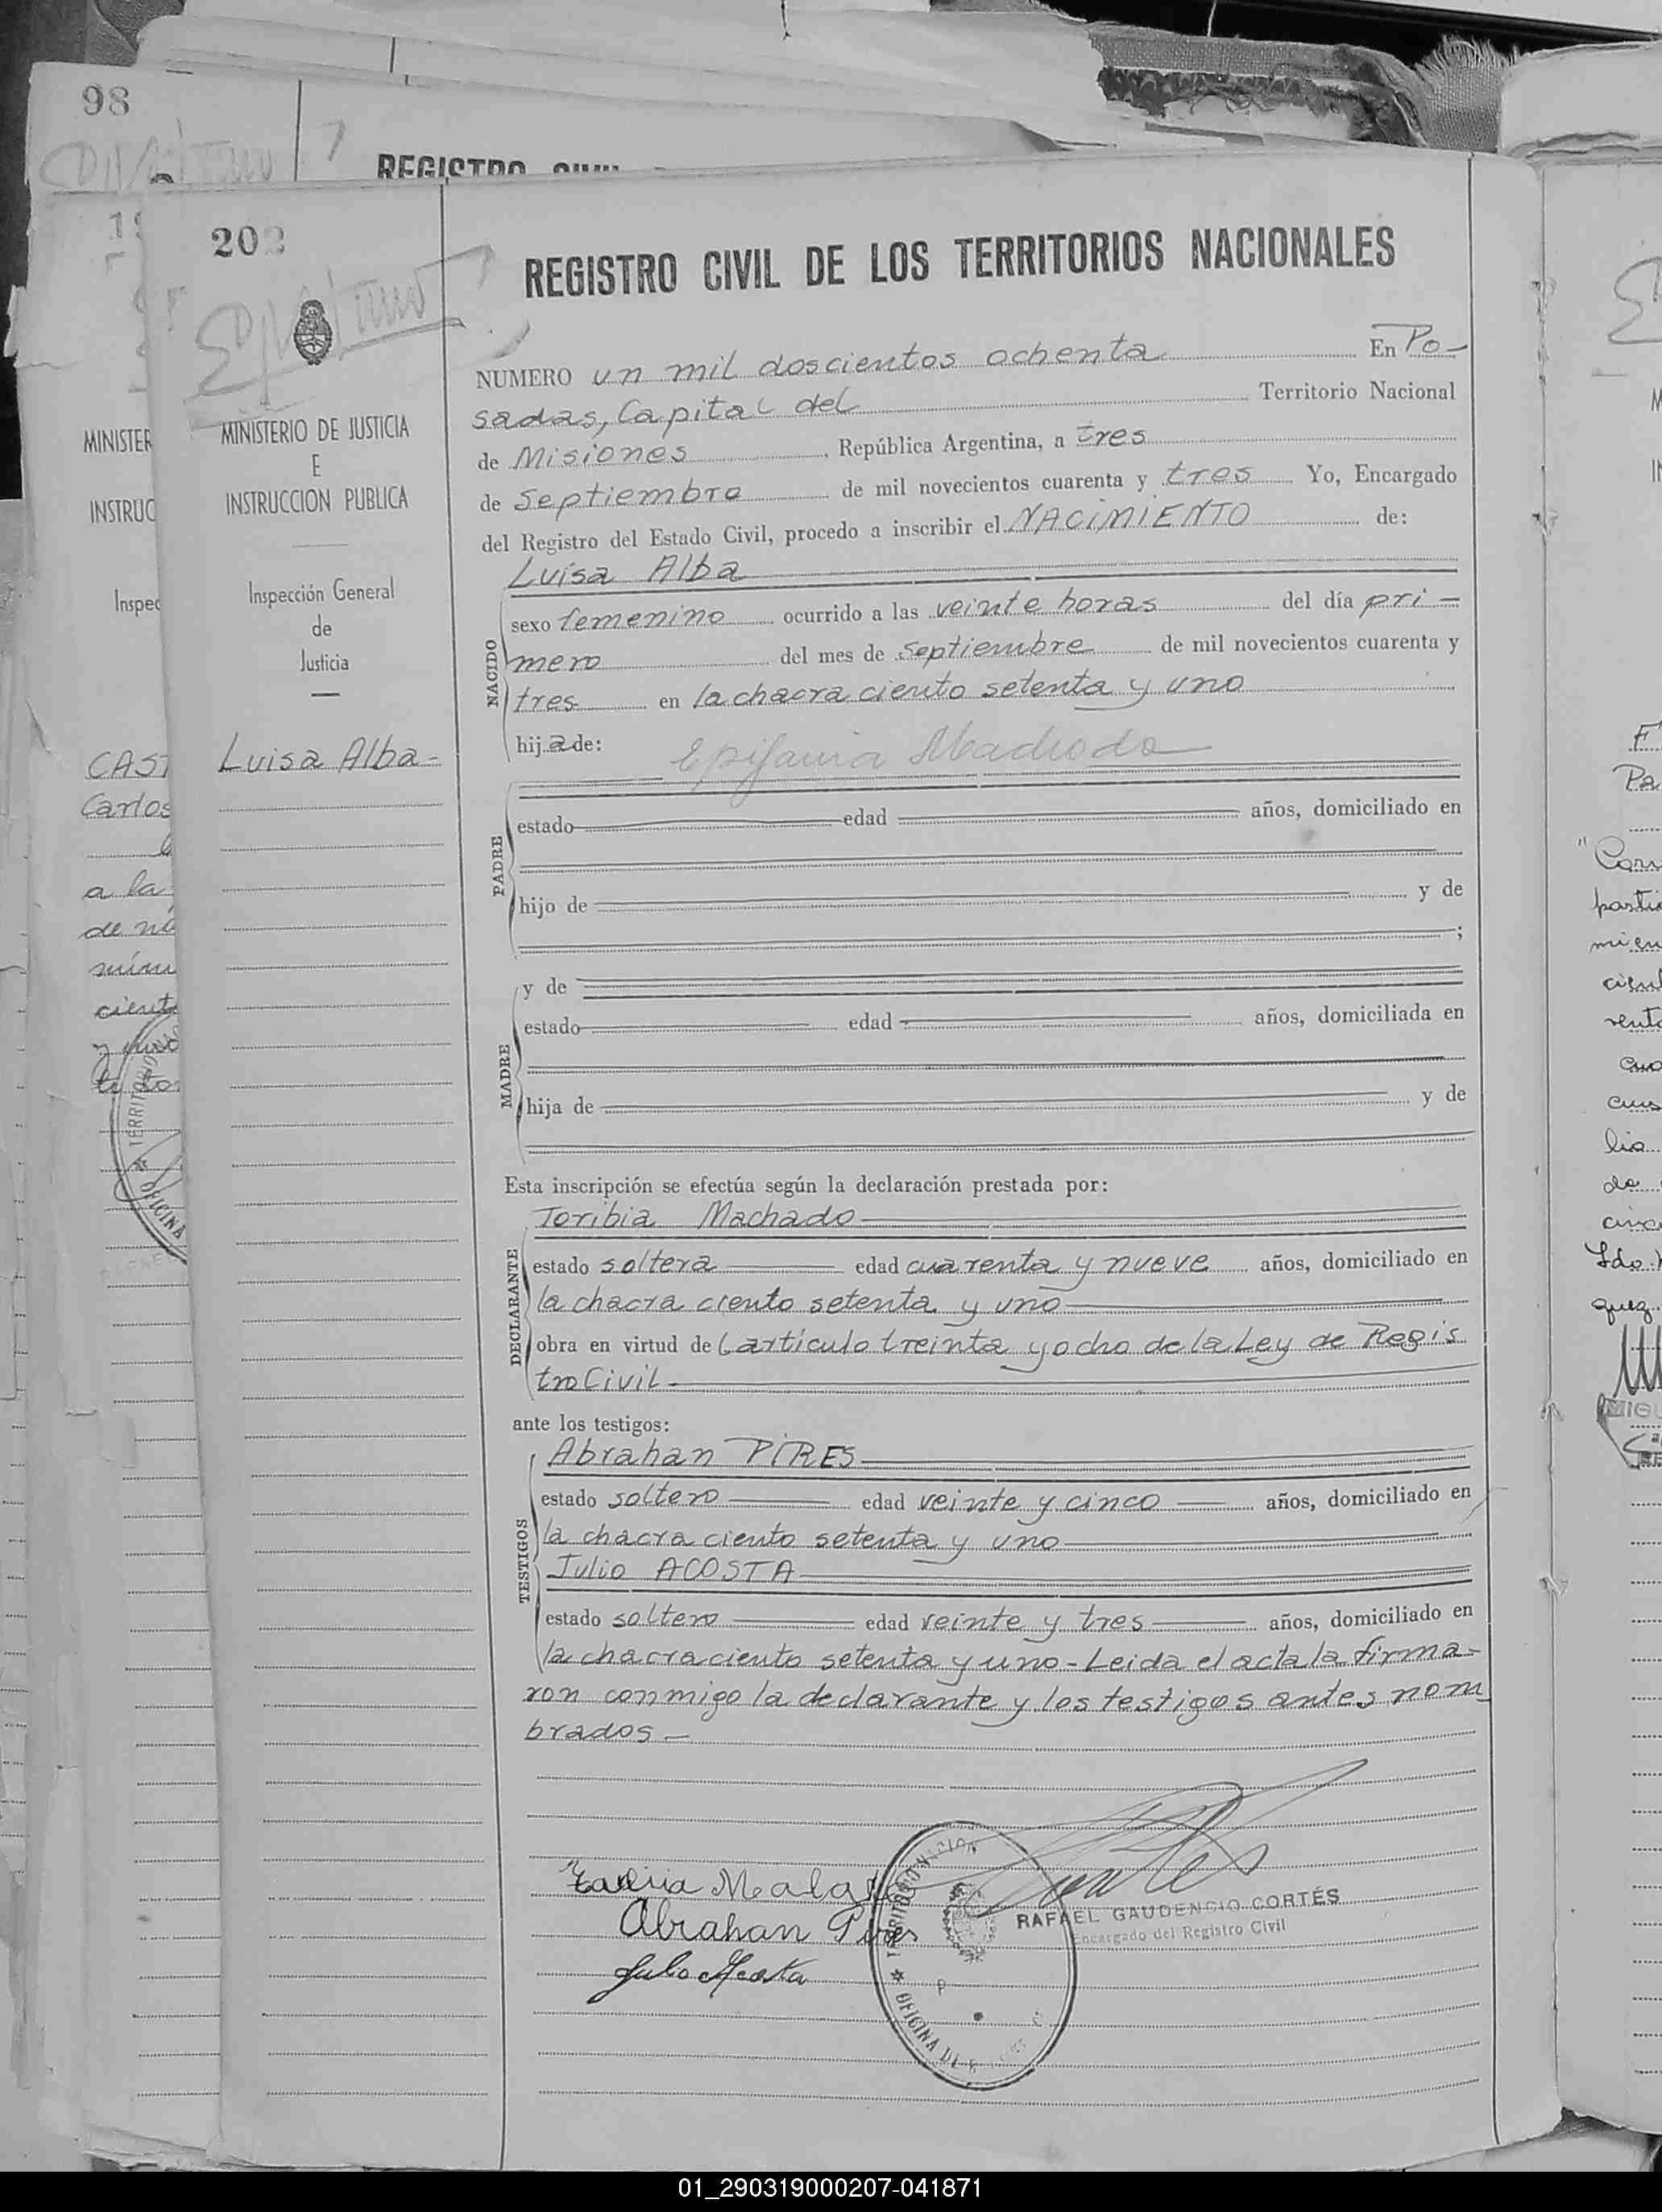 98
REGISTRO CIVIL
202
REGISTRO CIVIL DE LOS TERRITORIOS NACIONALES
MINISTERIO DE JUSTICIA
E
INSTRUCCION PUBLICA
Inspección General
de
Justicia
Luisa Alba-
NUMERO un mil doscientos ochenta En Po-
sadas, Capital del Territorio Nacional
de Misiones, República Argentina, a tres
de Septiembre de mil novecientos cuarenta y tres Yo, Encargado
del Registro del Estado Civil, procedo a inscribir el NACIMIENTO de:
Luisa Alba
NACIDO
sexo femenino ocurrido a las veinte horas del día pri-
mero del mes de septiembre de mil novecientos cuarenta y
tres en la chacra ciento setenta y uno
hija de: Epifania Machado
PADRE
estado edad años, domiciliado en
hijo de y de
;
MADRE
y de
estado edad años, domiciliada en
hija de y de
Esta inscripción se efectúa según la declaración prestada por:
DECLARANTE
Toribia Machado
estado soltera edad cuarenta y nueve años, domiciliado en
la chacra ciento setenta y uno
obra en virtud del artículo treinta y ocho de la Ley de Regis
tro Civil-
ante los testigos:
TESTIGOS
Abrahan PIRES
estado soltero edad veinte y cinco años, domiciliado en
la chacra ciento setenta y uno
Julio ACOSTA
estado soltero edad veinte y tres años, domiciliado en
la chacra ciento setenta y uno-Leida el acta la firma-
ron conmigo la declarante y los testigos antes nom
brados-
Abrahan Pires
Julio Acosta
RAFAEL GAUDENCIO CORTÉS
Encargado del Registro Civil
OFICINA DE
MINISTER
INSTRUC
Inspec
CAST
Carlos
a la
de nú
ciento
TERRITORIO
OFICINA
01_290319000207-041871